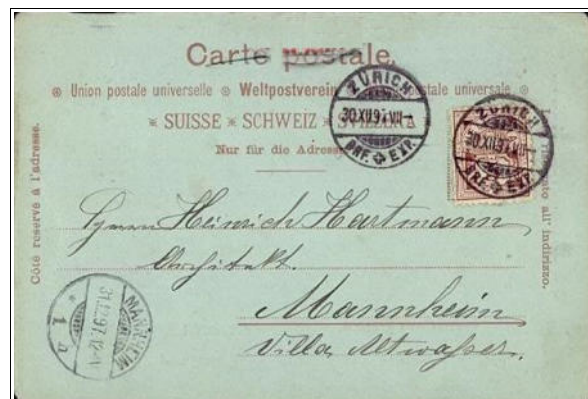 Carte postale.
Union postale universelle Weltpostverein postale universale
SUISSE SCHWEIZ SVIZZERA
Nur für die Adresse
Côté réservé à l'adresse.
all' indirizzo.
ZÜRICH
30.XII.97.VII-
BRF. EXP.
ZÜRICH
30.XII.97.VII-
BRF. EXP.
Herrn Heinrich Hartmann
Architekt.
Mannheim
Villa Altwasser.
MANNHEIM
31.12.97.12-1
1. a